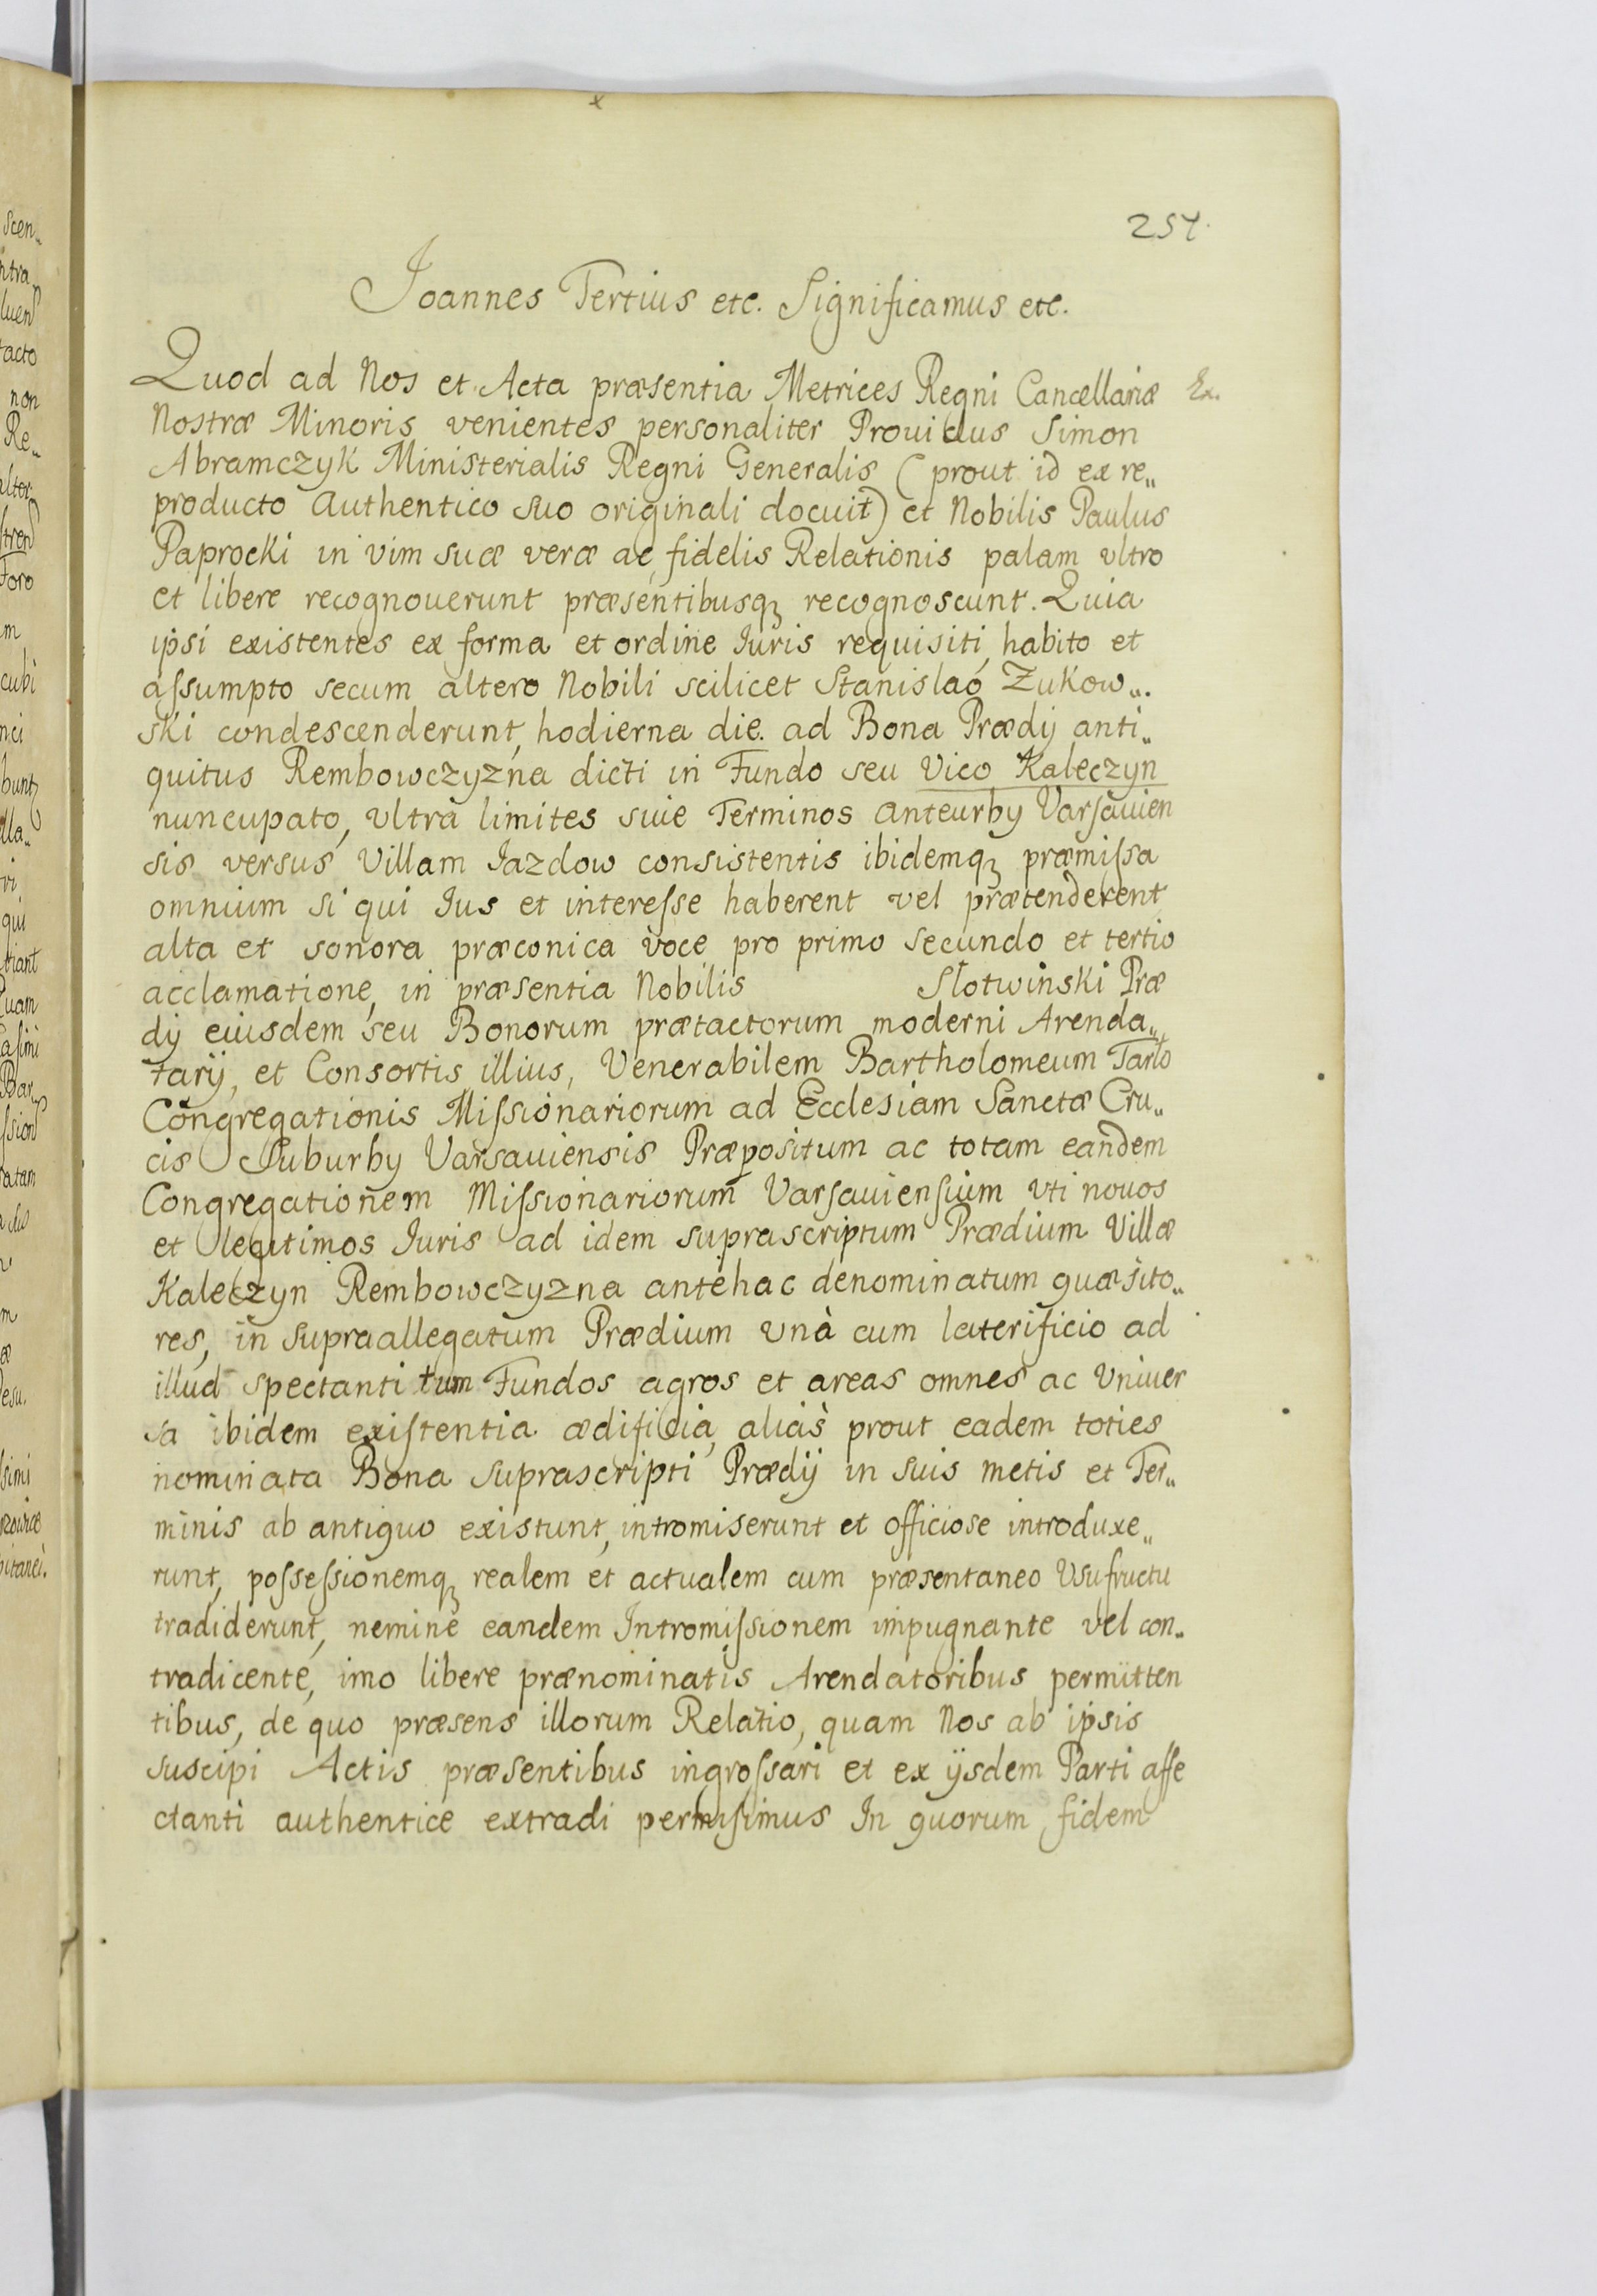 254.
Joannes Tertius etc. Significamus etc.
Quod ad Nos et Acta præsentia Metrices Regni Cancellariæ Ex.
Nostræ Minoris venientes personaliter Prouidus Simon
Abramczyk Ministerialis Regni Generalis (prout id ex re„
producto Authentico suo originali docuit) et Nobilis Paulus
Paprocki in vim suæ veræ ac fidelis Relationis palam vltro
et libere recognouerunt præsentibusq₃ recognoscunt. Quia
ipsi existentes ex forma et ordine Iuris requisiti, habito et
assumpto secum altero Nobili scilicet Stanislao Zukow„.
ski condescenderunt, hodierna die. ad Bona Prædij anti„
quitus Rembowczyzna dicti in Fundo seu Vico Kaleczyn
nuncupato, vltra limites siue Terminos anteurby Varsauien
sis versus Villam Jazdow consistentis ibidemq₃ præmissa
omnium si qui Ius et interesse haberent vel prætenderent
alta et sonora præconica voce pro primo secundo et tertio
acclamatione, in præsentia Nobilis Słotwinski Præ
dij eiusdem seu Bonorum prætactorum moderni Arenda„
tarij, et Consortis illius, Venerabilem Bartholomeum Tarło
Congregationis Missionariorum ad Ecclesiam Sanctæ Cru„
cis Suburby Varsauiensis Præpositum ac totam eandem
Congregationem Missionariorum Varsauiensium vti nouos
et legitimos Iuris ad idem suprascriptum Prædium Villæ
Kaleczyn Rembowczyzna antehac denominatum quæsito„
res, in supraallegatum Prædium vnà cum laterificio ad
illud spectanti tum Fundos agros et areas omnes ac Vniuer
sa ibidem existentia ædificia, aliàs prout eadem toties
nominata Bona suprascripti Prædij in suis metis et Ter„
minis ab antiquo existunt, intromiserunt et officiose introduxe„
runt, possessionemq₃ realem et actualem cum præsentaneo Vsufructu
tradiderunt, nemine eandem Intromissionem impugnante vel con„
tradicente, imo libere prænominatis Arendatoribus permitten
tibus, de quo præsens illorum Relatio, quam Nos ab ipsis
suscipi Actis præsentibus ingrossari et ex ijsdem Parti affe
ctanti authentice extradi permisimus In quorum fidem